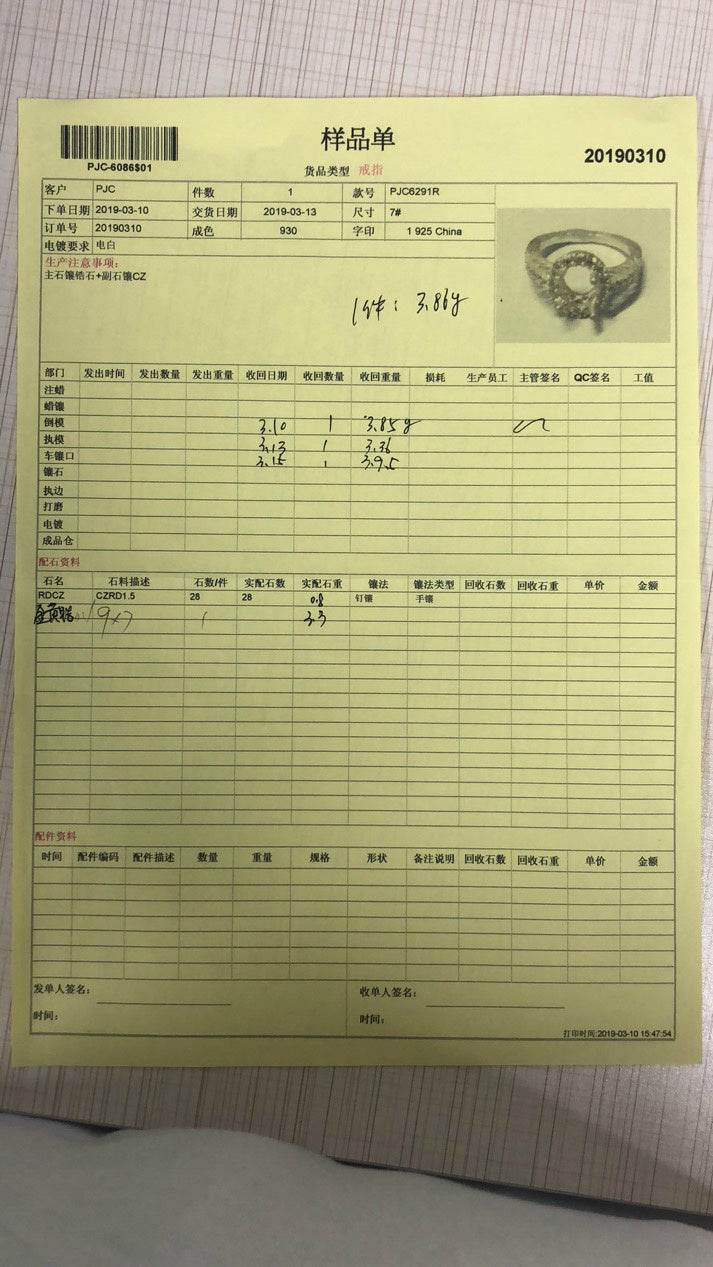 样品单
PJC-6086$01
货品类型 戒指
20190310
客户 PJC 件数 1 款号 PJC6291R
下单日期 2019-03-10 交货日期 2019-03-13 尺寸 7#
订单号 20190310 成色 930 字印 1 925 China
电镀要求 电白
生产注意事项:
主石镶锆石+副石镶CZ
1件: 3.86g
部门 发出时间 发出数量 发出重量 收回日期 收回数量 收回重量 损耗 生产员工 主管签名 QC签名 工值
注蜡
蜡镶
倒模 3.10 1 3.85g
执模 3.13 1 3.36
车镶口 3.15 1 3.95
镶石
执边
打磨
电镀
成品仓
配石资料
石名 石料描述 石数/件 实配石数 实配石重 镶法 镶法类型 回收石数 回收石重 单价 金额
RDCZ CZRD1.5 28 28 0.8 钉镶 手镶
9×7 1 3.3
配件资料
时间 配件编码 配件描述 数量 重量 规格 形状 备注说明 回收石数 回收石重 单价 金额
发单人签名: 收单人签名:
时间: 时间:
打印时间:2019-03-10 15:47:54